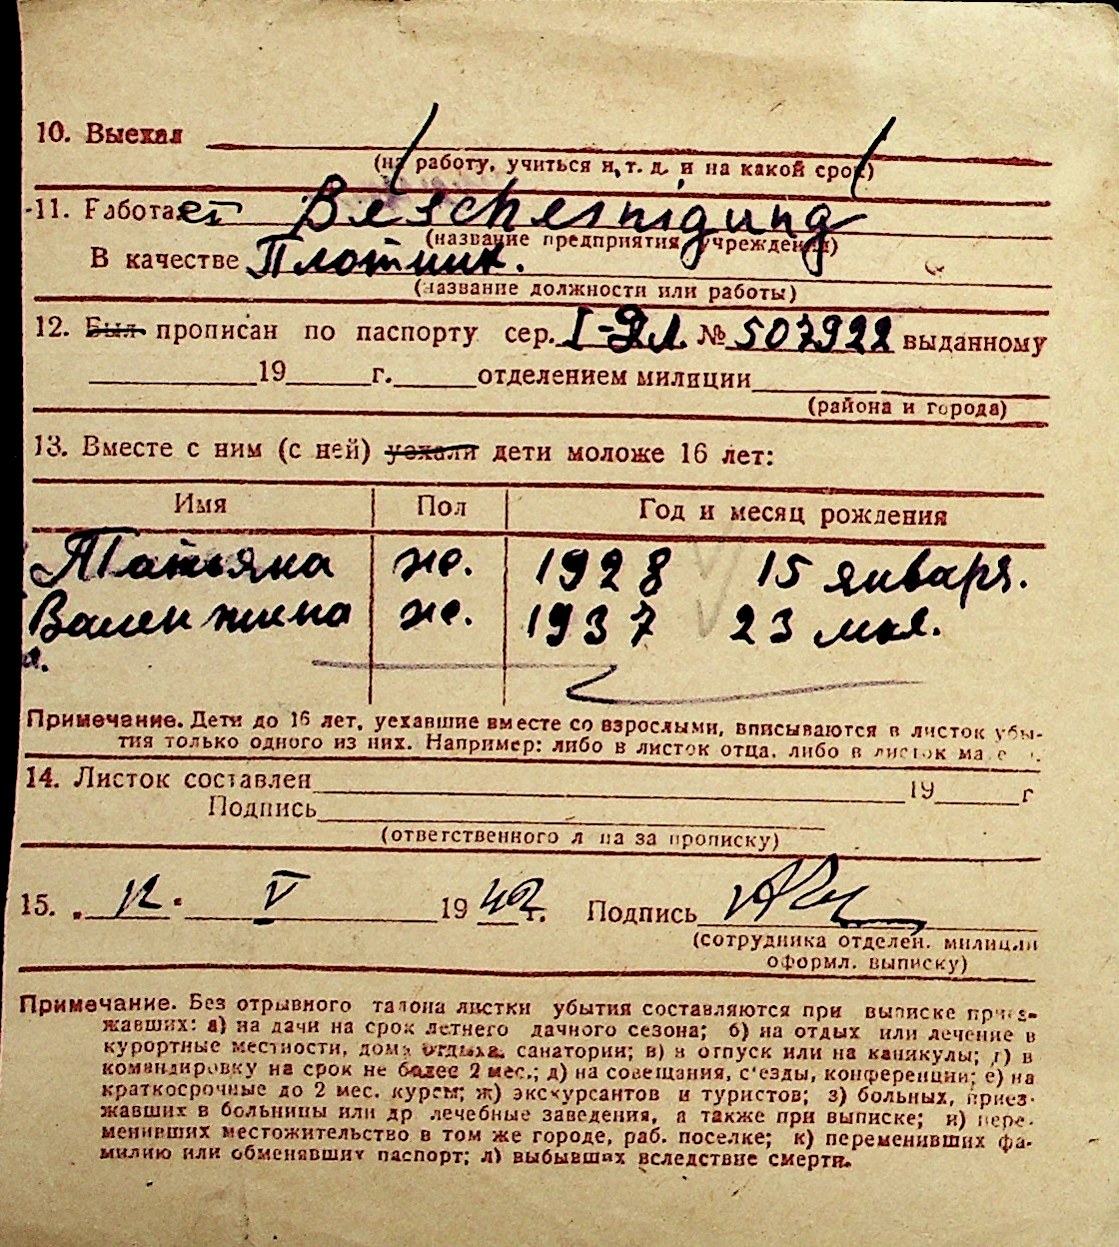 10. Выехал
(на работу, учиться и, т. д. и на какой срок)
11. Работает Bescheinigung
(название предприятия, учреждения)
В качестве Плотник.
(название должности или работы)
12. Был прописан по паспорту сер. I-ЯЛ. № 507922 выданному
19 г. отделением милиции
(района и города)
13. Вместе с ним (с ней) уехали дети моложе 16 лет:
Имя Пол Год и месяц рождения
Татьяна ж. 1928 15 января.
Валентина ж. 1937 23 мая.
Примечание. Дети до 16 лет, уехавшие вместе со взрослыми, вписываются в листок убы-
тия только одного из них. Например: либо в листок отца, либо в листок
14. Листок составлен 19 г
Подпись
(ответственного за прописку)
15. 12. V 1942 г. Подпись
(сотрудника отделен. милиции
оформл. выписку)
Примечание. Без отрывного талона листки убытия составляются при выписке приез-
жавших: а) на дачи на срок летнего дачного сезона; б) на отдых или лечение в
курортные местности, дома отдыха, санатории; в) в отпуск или на каникулы; г) в
командировку на срок не более 2 мес.; д) на совещания, с'езды, конференции; е) на
краткосрочные до 2 мес. курсы; ж) экскурсантов и туристов; з) больных, приез-
жавших в больницы или др лечебные заведения, а также при выписке; и) пере-
менивших местожительство в том же городе, раб. поселке; к) переменивших фа-
милию или обменявших паспорт; л) выбывших вследствие смерти.